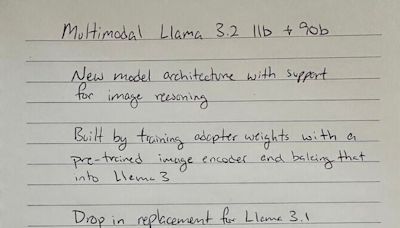 Multimodal Llama 3.2 11b + 90b
New model architecture with support
for image reasoning
Built by training adapter weights with a
pre-trained image encoder and baking that
into Llama 3
Drop in replacement for Llama 3.1